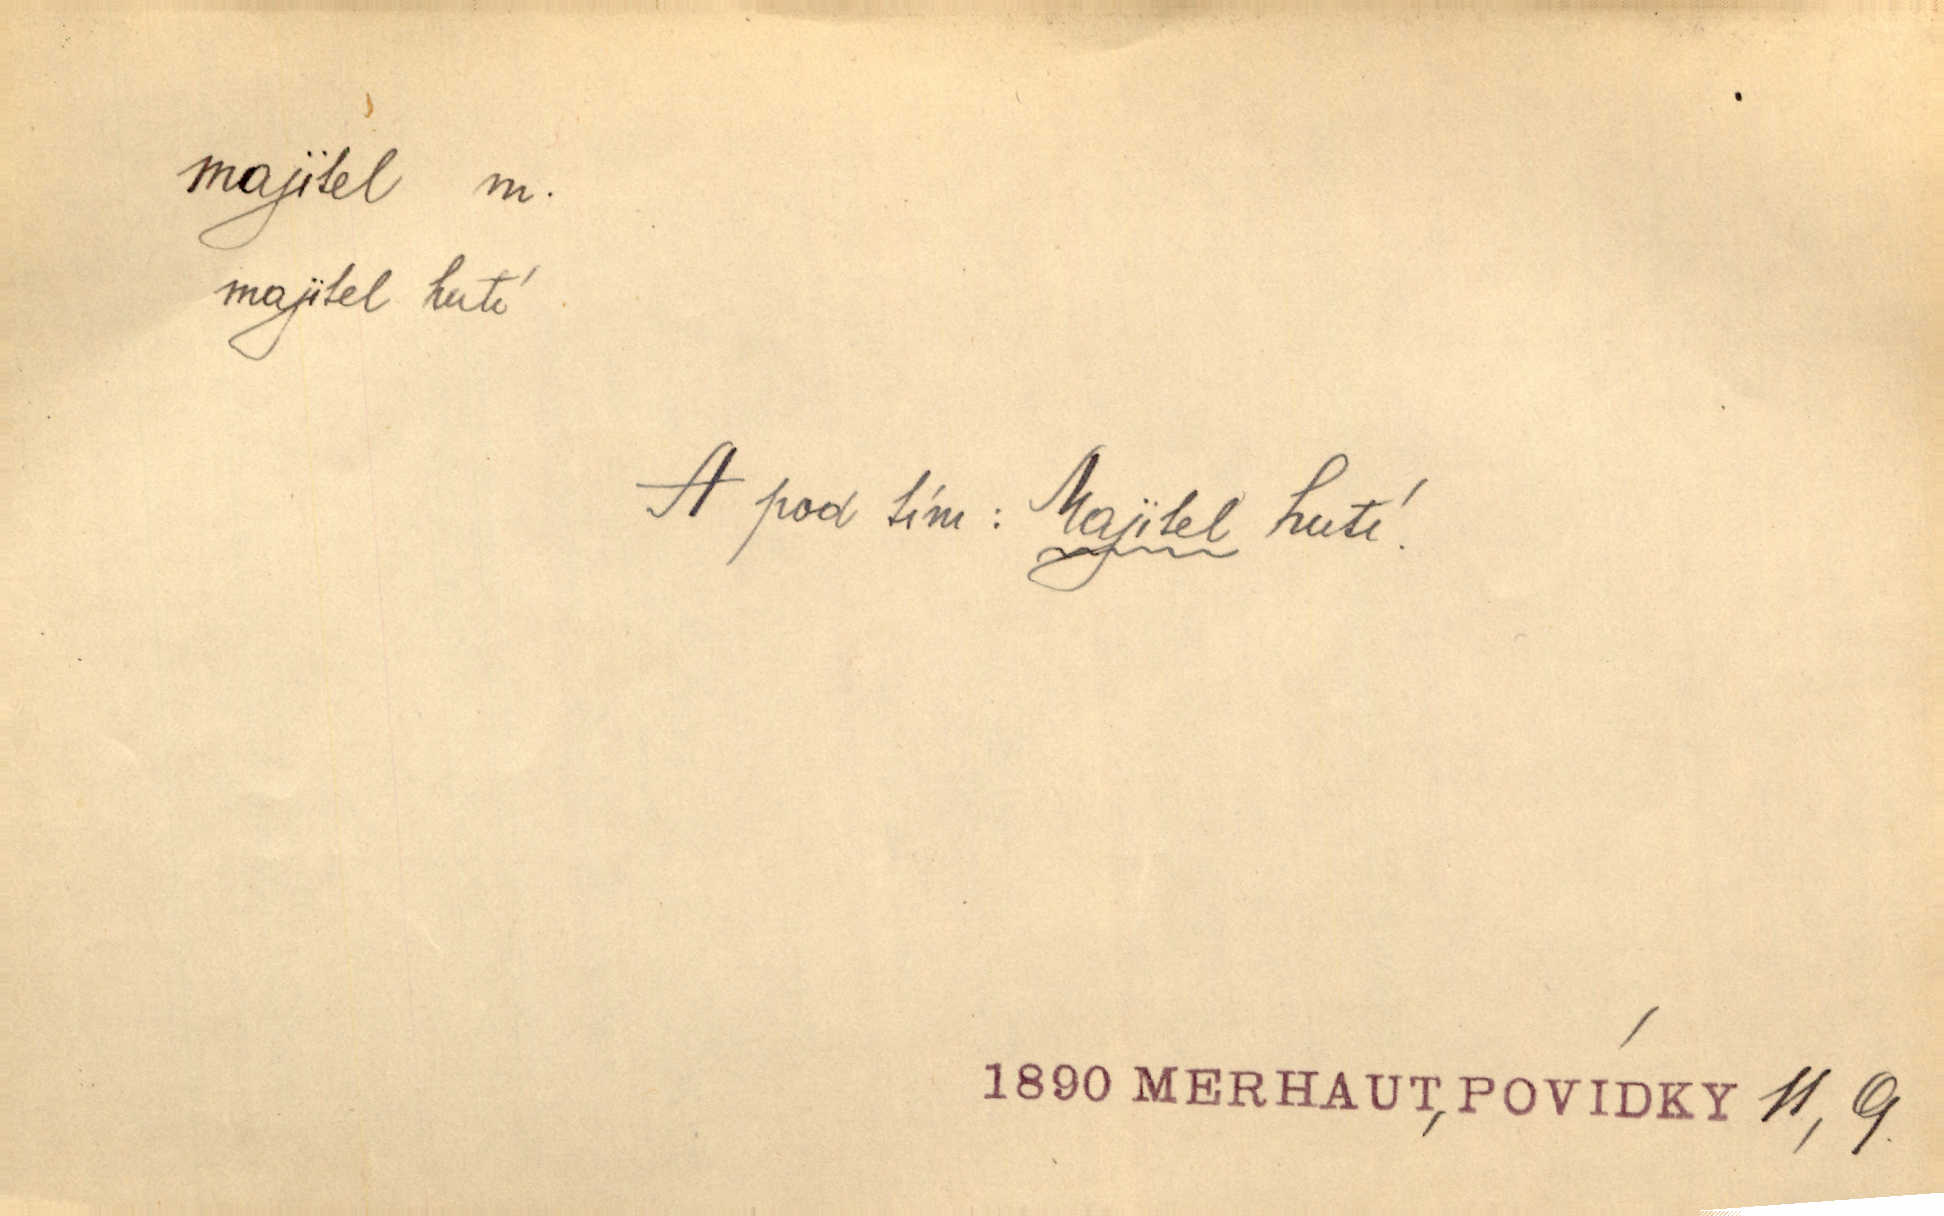 majitel m.
majitel hutí
A pod tím: Majitel hutí.
1890 MERHAUT, POVÍDKY 11, 9.